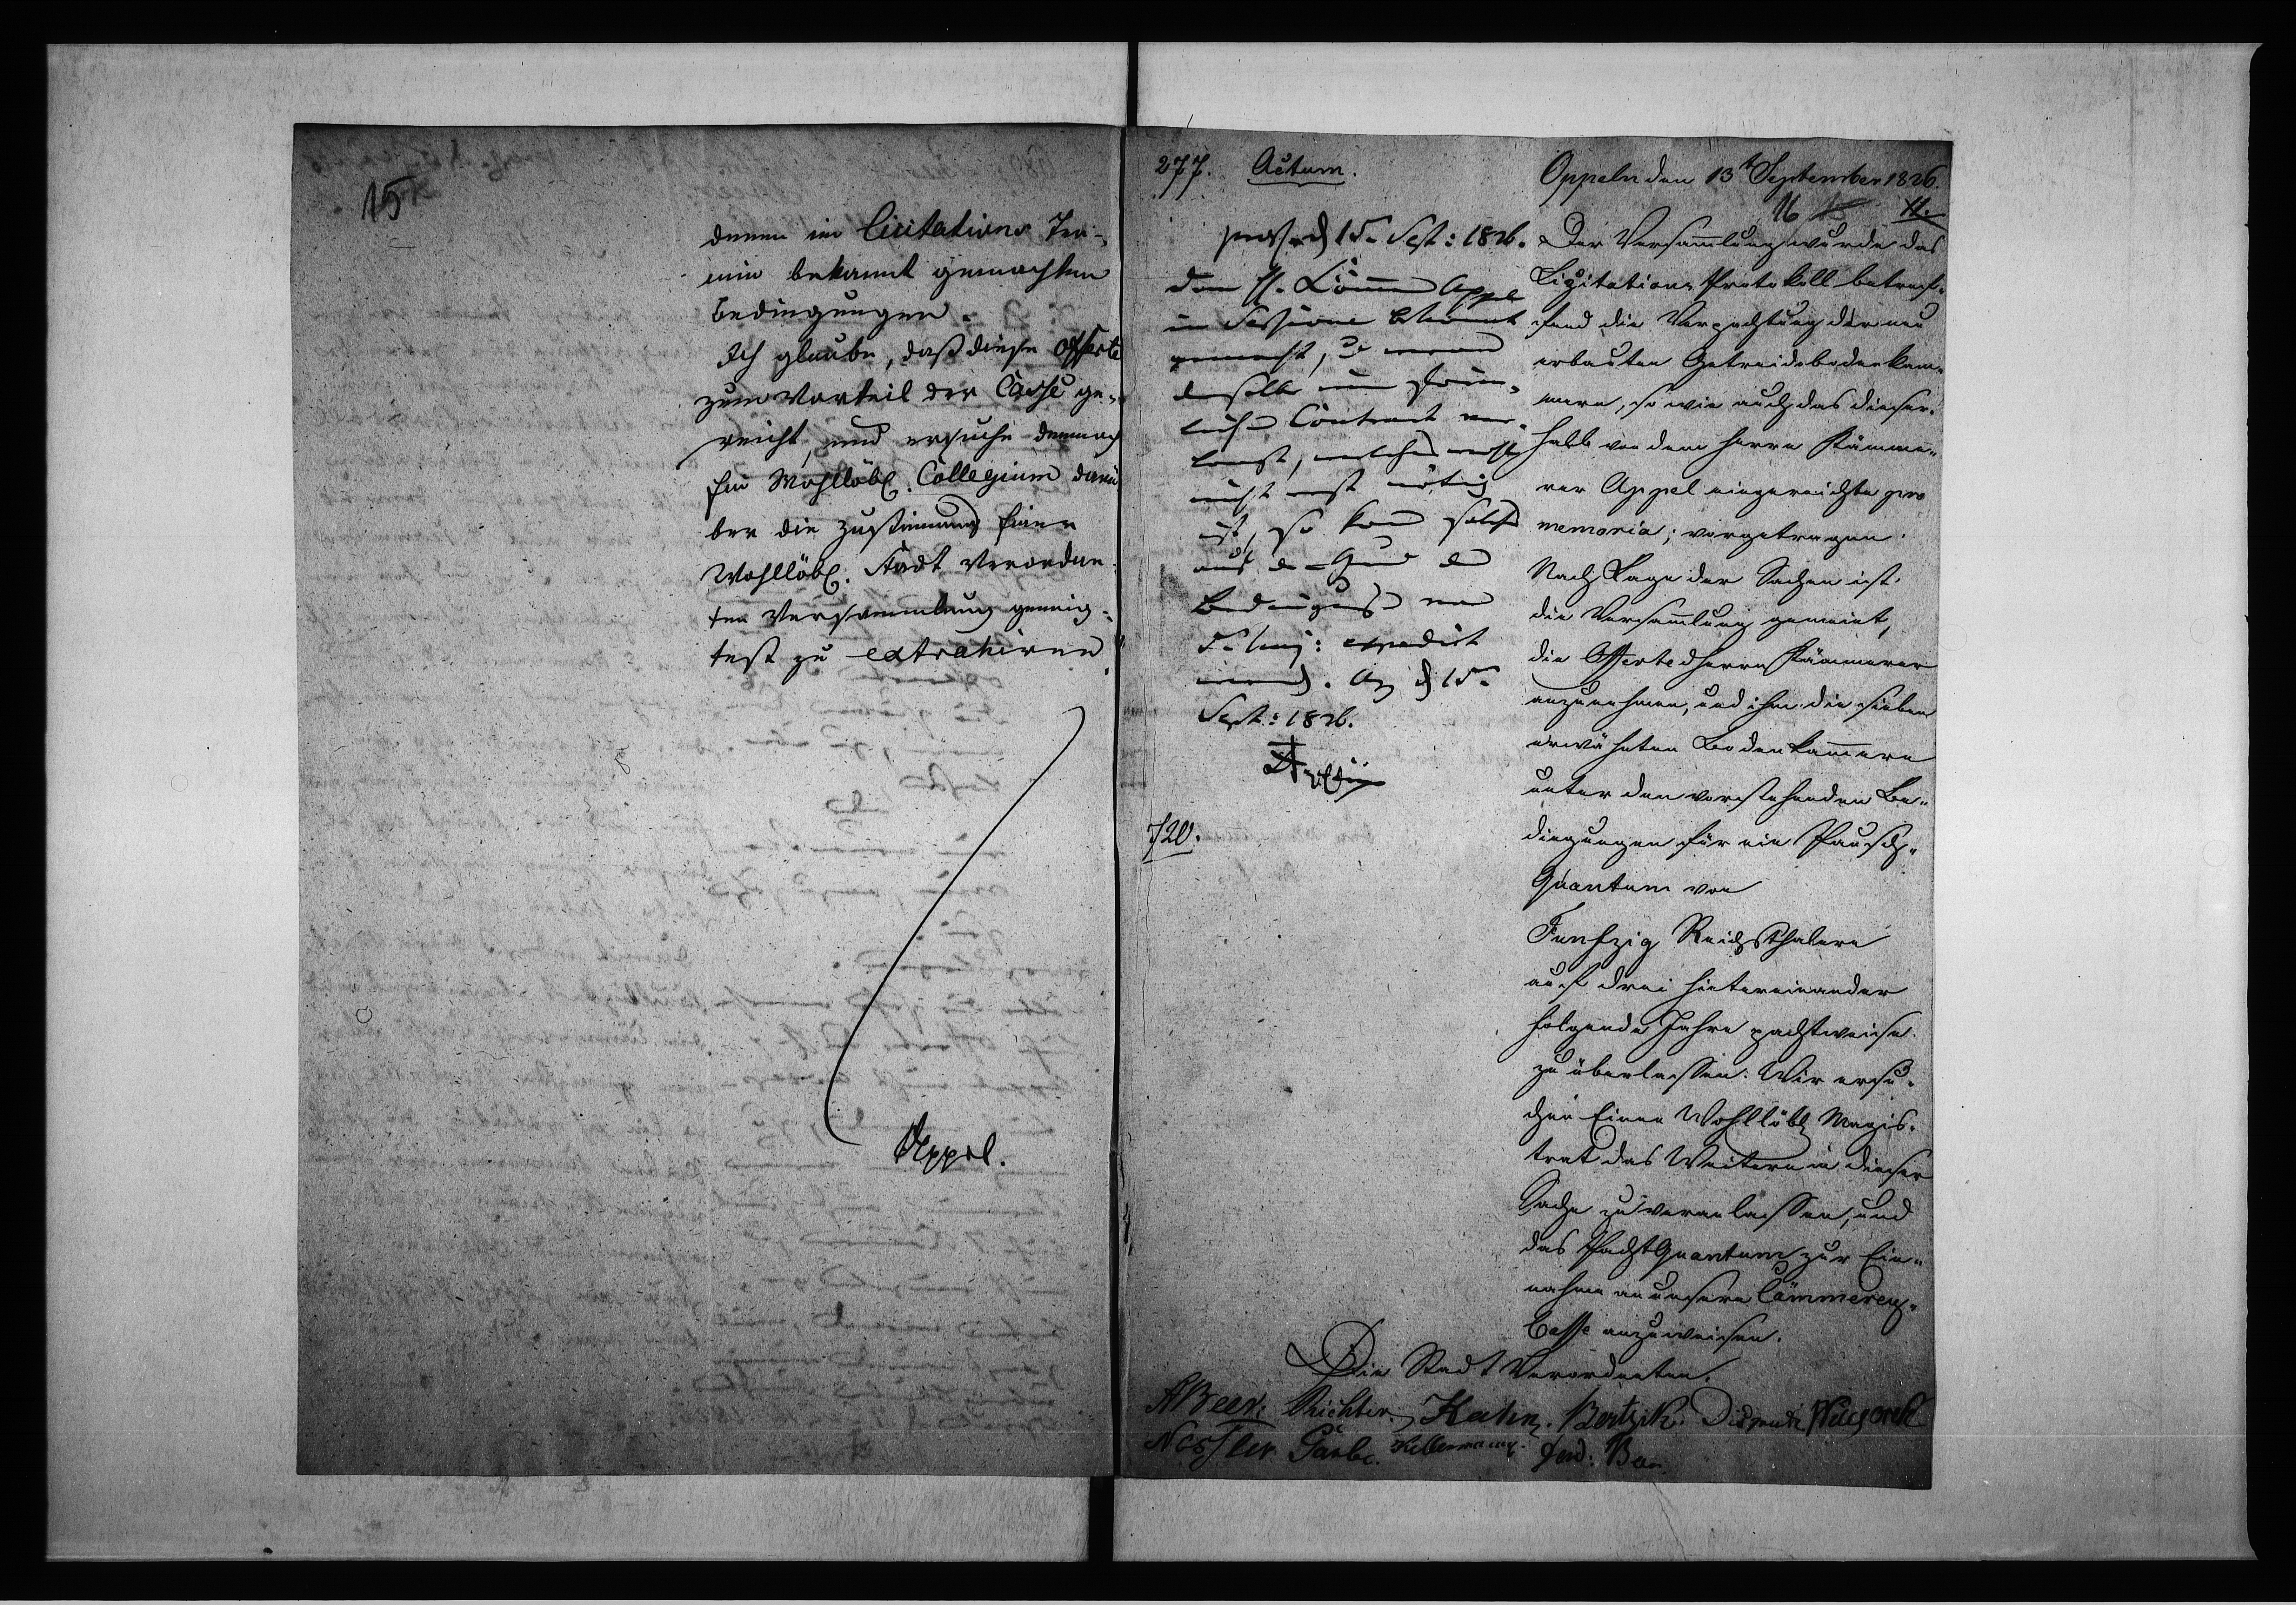 15
denen im Licitations Ter-
min bekannt gemachten
Bedingungen.
Ich glaube, daß diese Offerte
zum Vorteil der Casse ge-
reicht, und ersuche demnach
Ein Wohllöbl. Collegium darü
ber die Zustimmung Einer
Wohllöbl. Stadt Verordne-
ten Versammlung geneig-
test zu extrahiren.
Appel.
277. Actum.
15. Sept: 1826.
dem H. Cämm Appel
in Sessione bekannt
gemacht,
derselbe
Contract ver-
langt, welches
nicht erst nötig
ist, so kann solcher
aus
Bedingungen
expedirt
werden. 15.
Sept: 1826.
720.
Oppeln den 13t September 1826.
16 15 11.
Der Versam̄lung wurde das
Lizitations Protokoll betref-
fend die Verpachtung der neu
erbauten Getreidebodenkam-
mern, so wie auch das dieser-
halb von dem Herrn Kämme-
rer Appel eingereichte pro
memoria; vorgetragen.
Nach Lage der Sachen ist
die Versam̄lung gemeint,
die Offerte d Herrn Kämmerer
anzunehmen, und ihm die sieben
erwähnten Bodenkam̄ern
unter den vorstehenden Be-
dingungen für ein Pausch-
Quantum von
Funfzig Reichsthalern
auf drei hintereinander
folgende Jahre pachtweise
zu überlassen. Wir ersu-
chen Einen Wohllöbl Magis-
trat das Weitere in dieser
Sache zu veranlassen, und
das PachtQuantum zur Ein-
nahme an unsere Cämmerey-
Casse anzuweisen.
Die Stadt Verordneten.
ABeer. Richter. Kahn. Bertzik.
Nessler. Garbe. Kellermann. Ferd: Beer.